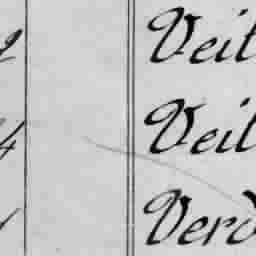 2 Veit
4 Veit
Verd